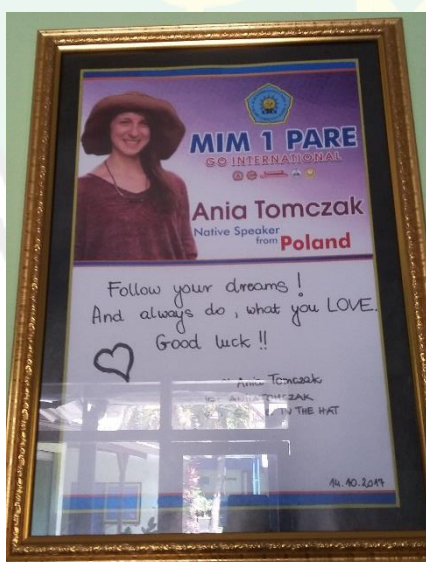 MIM 1 PARE
GO INTERNATIONAL
Ania Tomczak
Native Speaker
from Poland
Follow your dreams !
And always do, what you LOVE.
Good luck !!
Ania Tomczak
ANIA TOMCZAK
IN THE HAT
14.10.2017